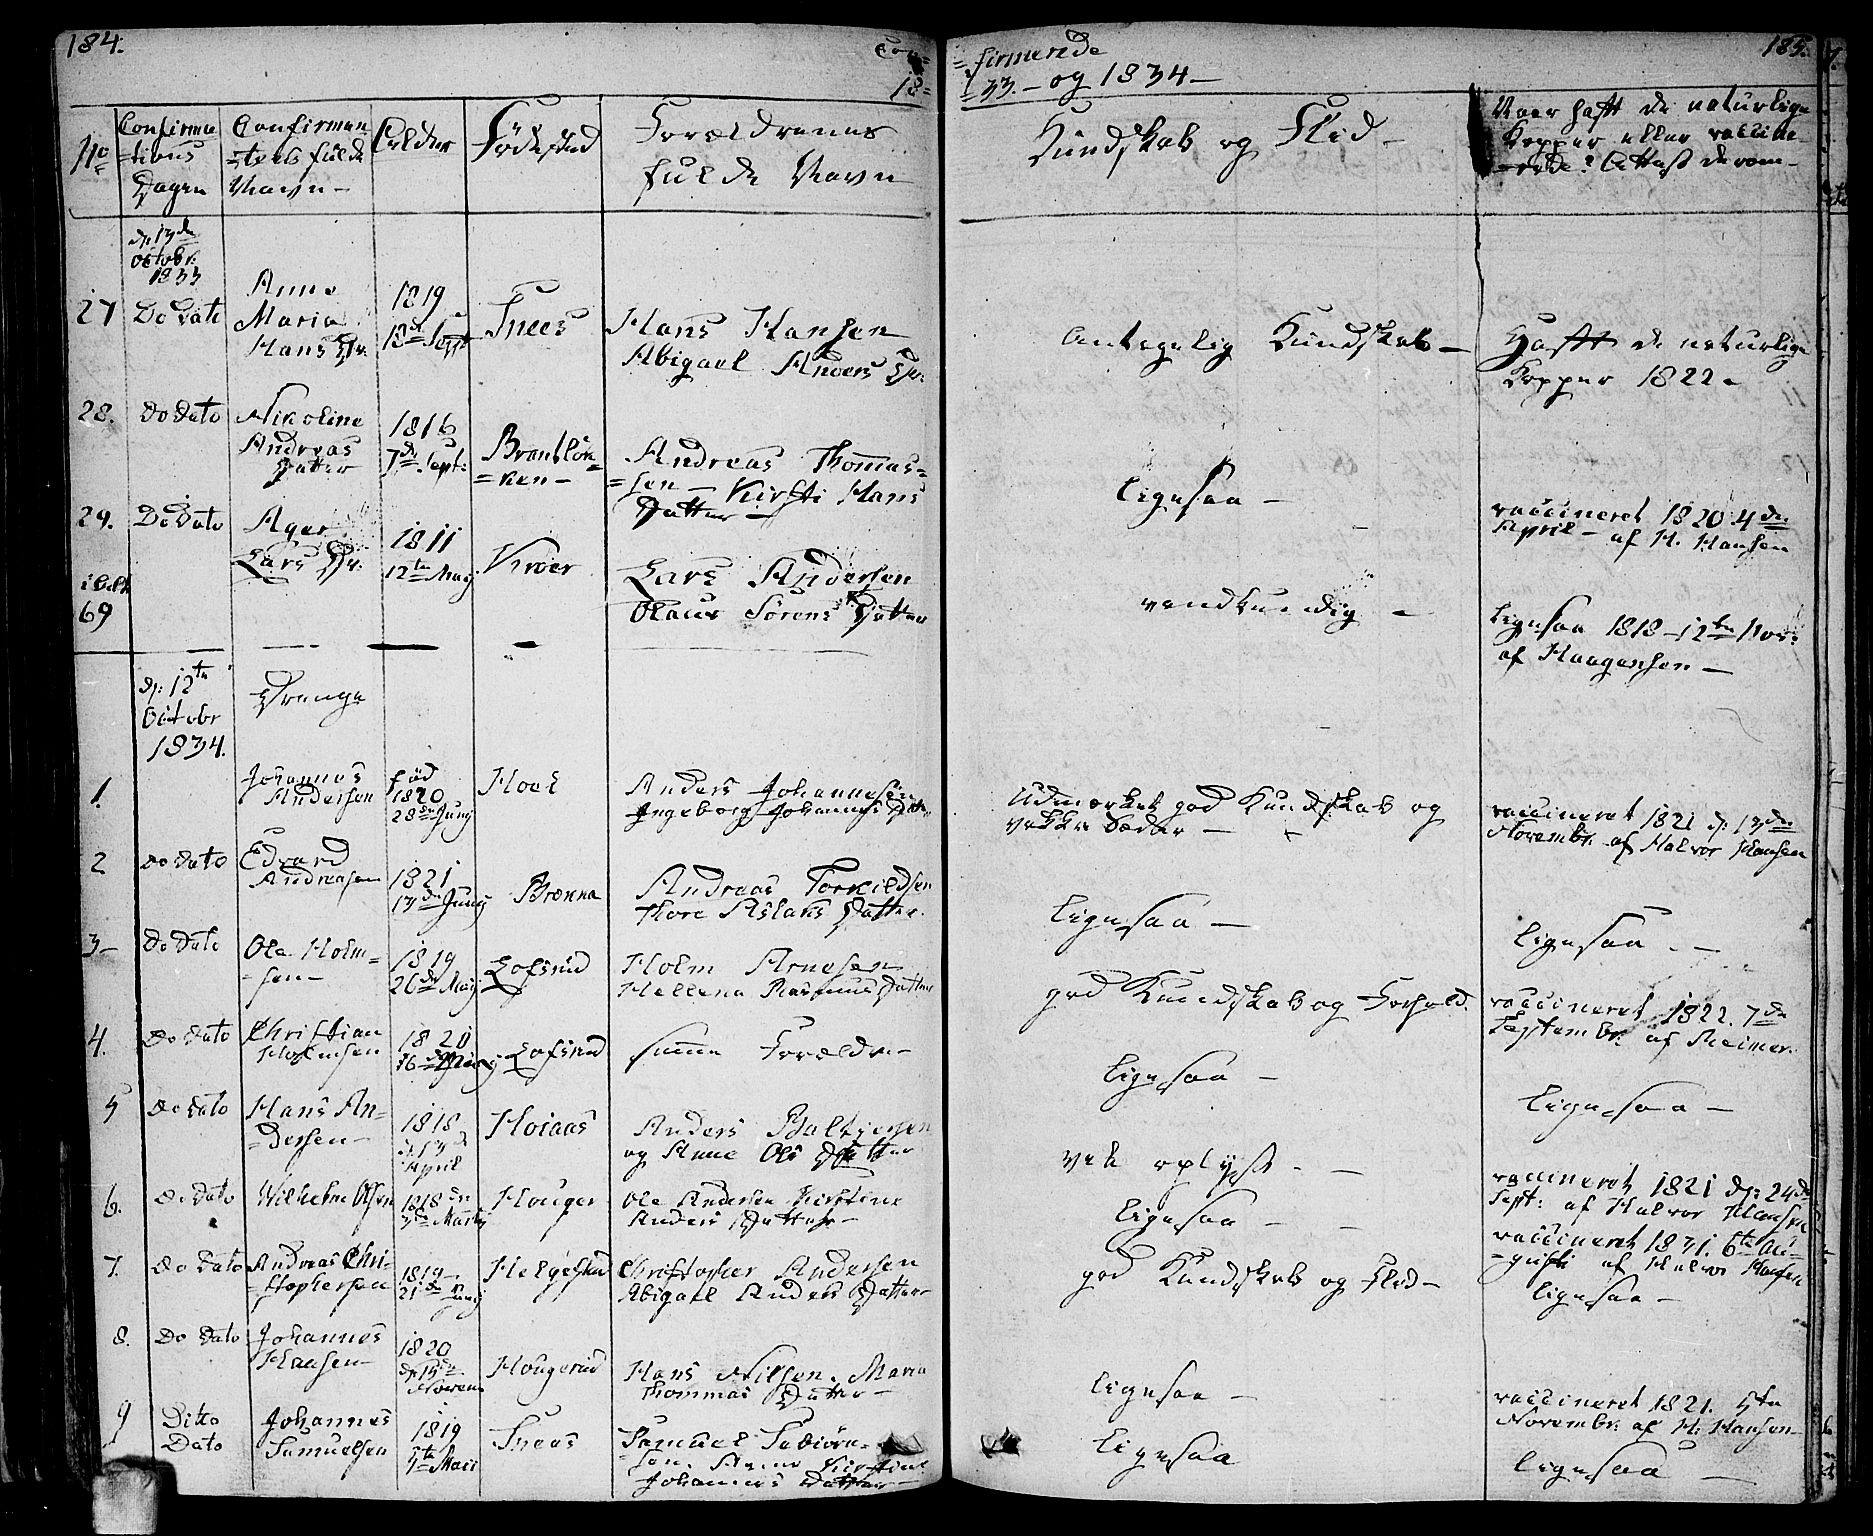 184.
Con=
18=
No
Confirma
=tions
Dagen
Confirman
=tens fulde
Navn –
Alder
Födested
Forældrenes
fulde Navn
d: 13de
Octobr:
1833
27
Do Dato
Anne
Maria
Hans Dr:
1819
Sept
Snees
Hans Hansen
Abigael Anders Dr:
28.
Do Dato
Nikoline
Andreas
Datter
1816
7de Sept:
Andreas Thomas=
=sen – Kirsti Hans
Datter –
29.
Do Dato
Lars Dr:
1811
12te May
Lars Andersen
Sörens Datter
69
d: 12te
Octobr
1834.
Drenge
1.
Johannes
Andersen
föd
1820
28de Juny
Hoel
Anders Johannesen
Ingeborg Johannes
2
do Dato
Edvard
Andreasen
1821
13de Juny
Brenna
Andreas Torkildsen
Thore Aslaks Datter.
3 –
Do Dato
Ole Holm=
=sen –
1819
26de May
Lofsrud
Holm Arnesen
Hellena Rasmus Datter
4.
Do Dato
Christian
Holmsen
1820
16de
Lofsrud
samme Forældre –
5
Do Dato
Hans An=
=dersen –
1818
April
Hoiaas
Anders
og Anne Ols Datter
6.
Do Dato
Wilhelm Olsen
1818
Marty
Houger
Ole Andersen Kirstine
Anders Datter –
7.
Do Dato
Andreas Chri=
=stophersen
1819
21de Juny
Helgestad
Christopher Andersen
Abigael Anders Datter
8.
Do Dato
Johannes
Hansen –
1820
d: 15de
Novem
Hougerud
Hans Nilsen. Maria
Thommas Datter –
9
Ditto
Dato
Johannes
Samuelsen
1819
5te Mai
Snees
Samuel Tobiörn=
=sen. Anne Kirstine
Johannes Datter –
=firmerede
=33. – og 1834 –
185.
Kundskab og Flid –
Naar haft de naturlige
Kopper eller vaccine=
=rede? Attest derom –
Antagelig Kundskab –
Haft de naturlige
Kopper 1822 –
ligesaa –
vaccineret 1820 4de
April – af H. Hansen
nödkundig –
ligesaa 1818 – 12te Nov:
af Haagensen –
Udmærket god Kundskab og
vakkre Sæder –
vaccineret 1821 d: 13de
Novembr: af Halvor Hansen
ligesaa –
ligesaa –
god Kundskab og Forhold.
vaccineret 1822. 7de
Septembr: af Reimer.
ligesaa –
ligesaa –
vel oplyst –
vaccineret 1821 d: 24de
Sept: af Halvor Hansen
ligesaa –
vaccineret 1831. 6te Au=
=gusti af Halvor Hansen
god Kundskab og Flid –
ligesaa –
ligesaa –
vaccineret 1821. 5te
Novembr: af H: Hansen
ligesaa
ligesaa –